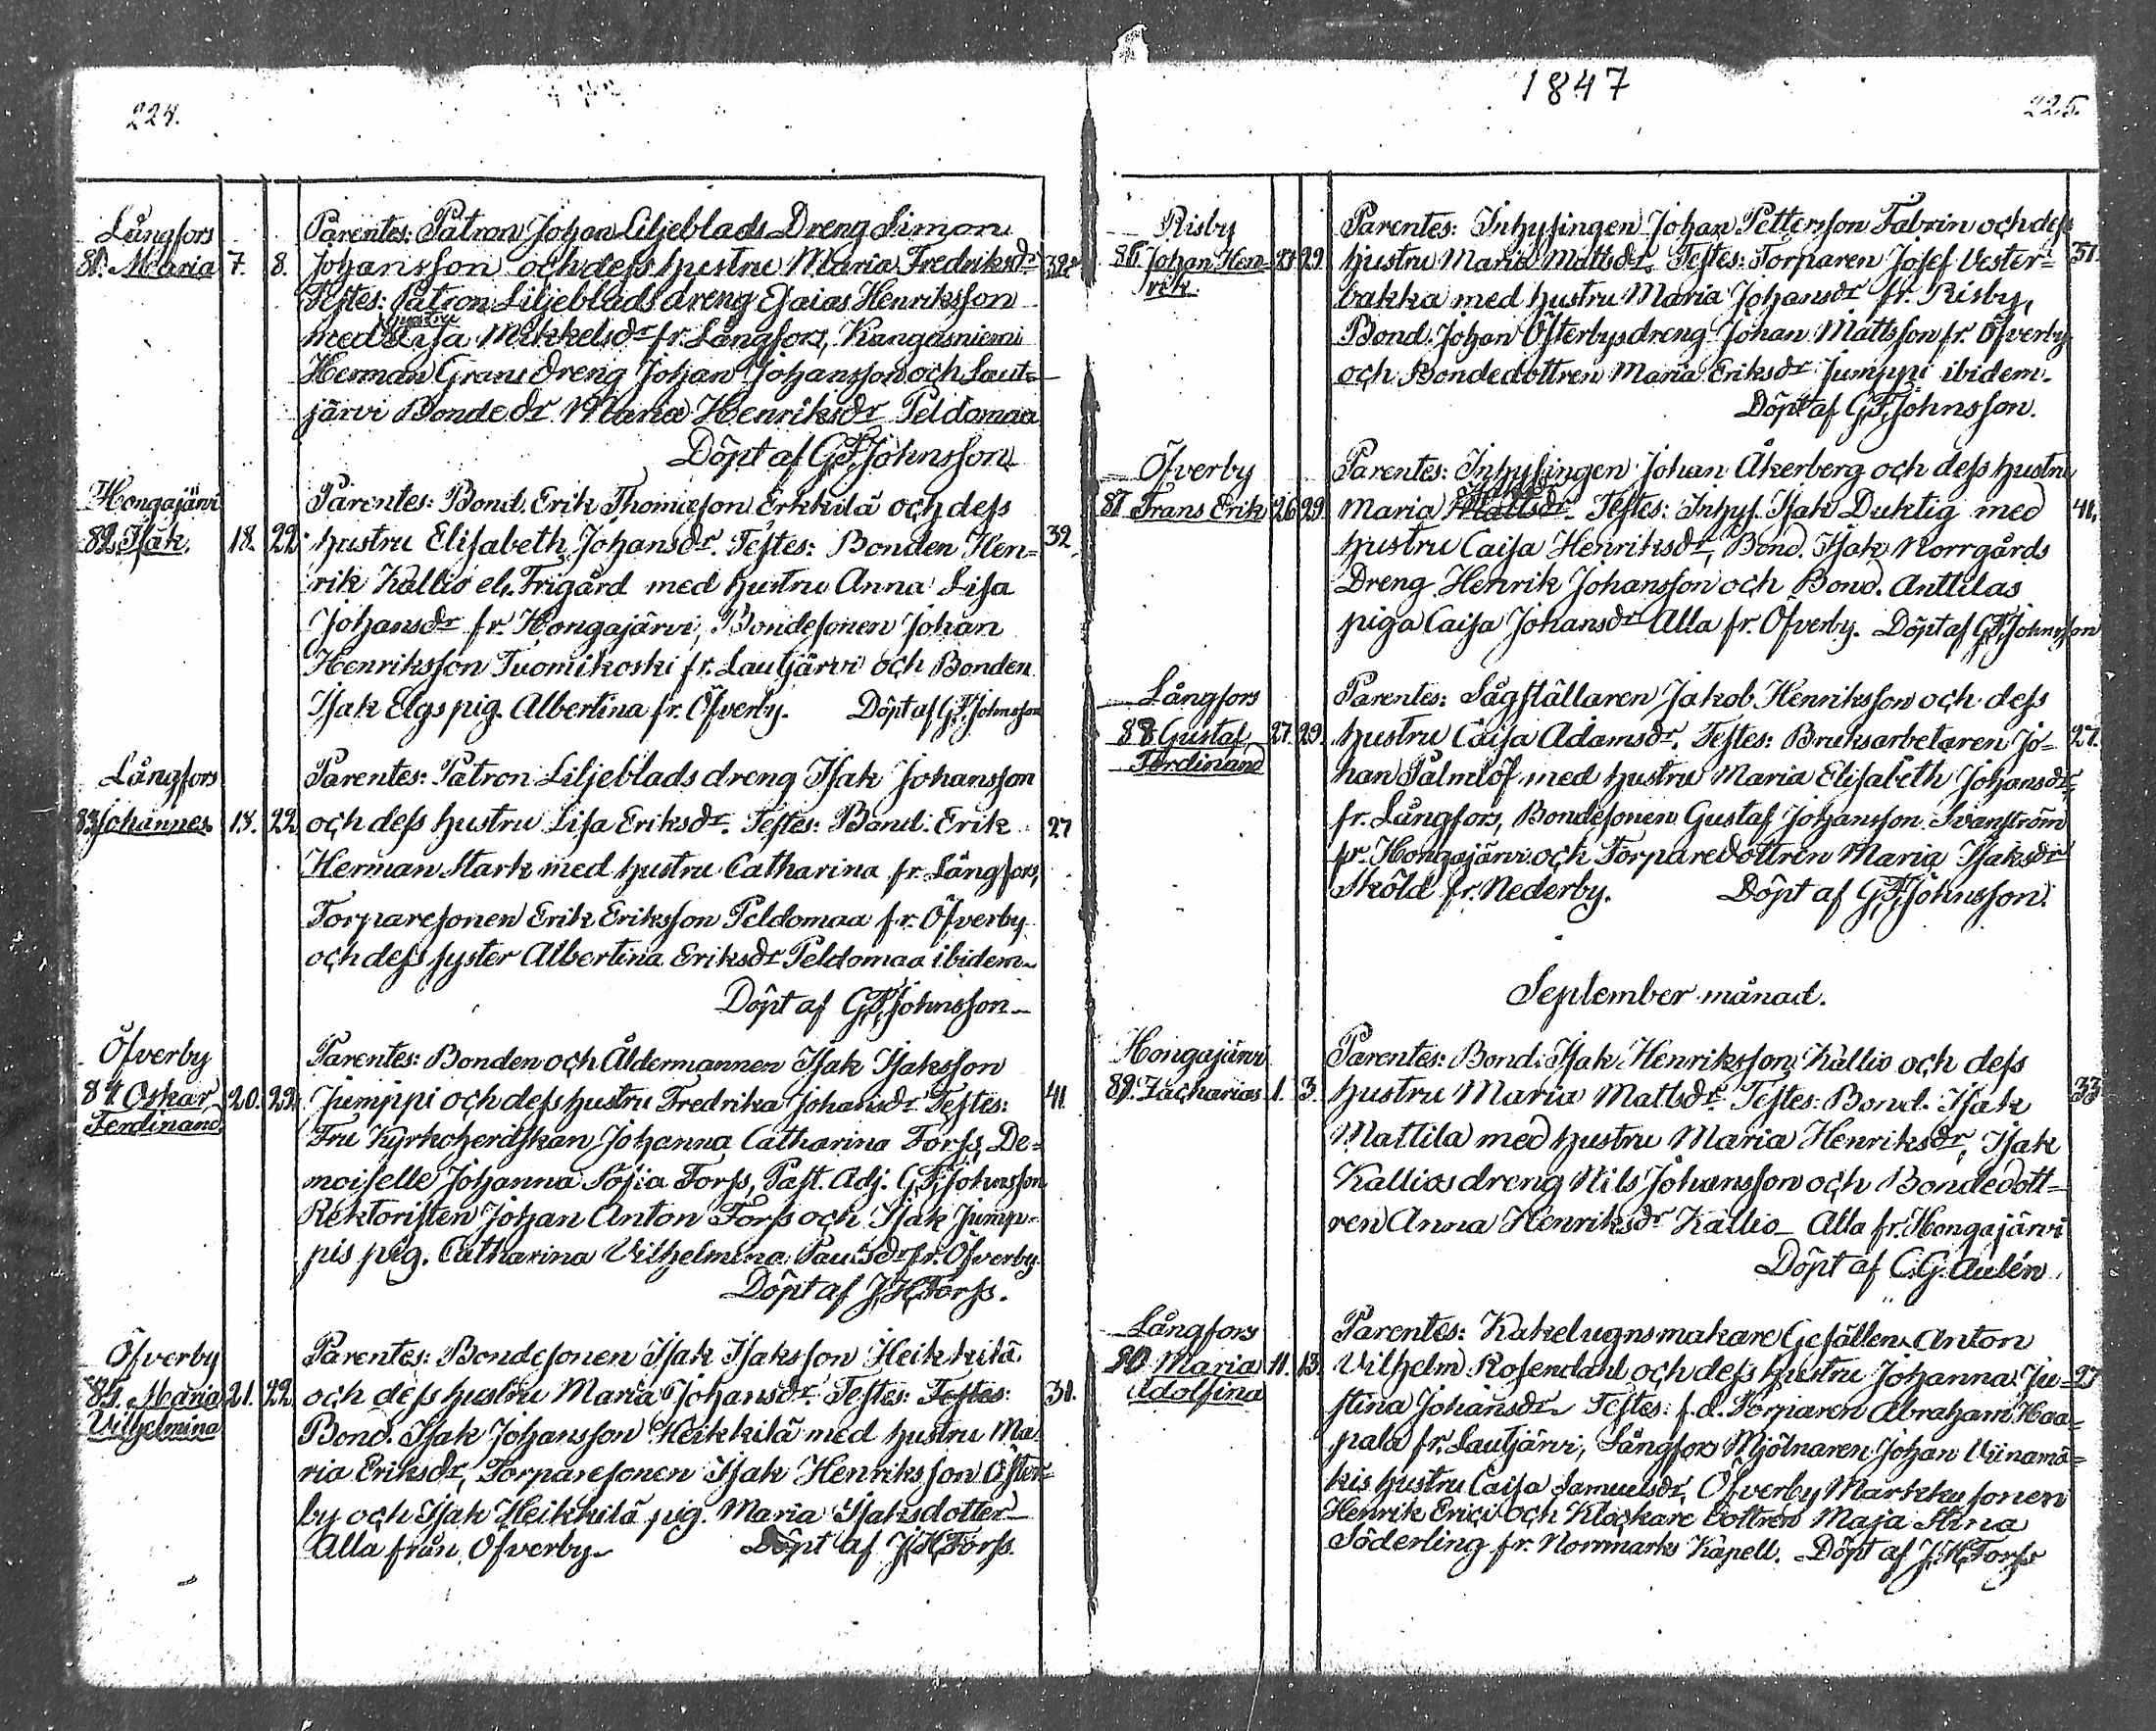 224.
Långfors
81. Maria 7. 8. Parentes: Patron Johan Liljeblads Dreng Simon
Johansson och dess hustru Maria Fredriksdr 32
Testes: Patron Liljeblads dreng Esaias Henriksson
med hustru Lisa Mikkelsdr fr. Långfors, Kangasniemi
Herman Grans dreng Johan Johansson och Laut-
järvi Bondedr Maria Henriksdr Peldomaa
Döpt af G.F. Johnsson
Hongajärvi
82 Isak. 18. 22. Parentes: Bond. Erik Thomasson Erkkilä och dess
hustru Elisabeth Johansdr. Testes: Bonden Hen- 32.
rik Kallio el. Frigård med hustru Anna Lisa
Johansdr fr. Hongajärvi, Bondesonen Johan
Henriksson Tuomikoski fr. Lautjärvi och Bonden
Isak Elgs pig. Albertina fr. Öfverby. Döpt af G.F. Johnsson
Långfors
83 Johannes 18. 22. Parentes: Patron Liljeblads dreng Isak Johansson
och dess hustru Lisa Eriksdr. Testes: Bond. Erik 27
Herman Stark med hustru Catharina fr. Långfors,
Torparesonen Erik Eriksson Peldomaa fr. Öfverby
och dess syster Albertina Eriksdr Peldomaa ibidem
Döpt af G.F. Johnsson
Öfverby
84 Oskar 20. 23. Parentes: Bonden och Åldermannen Isak Isaksson
Ferdinand Jumppi och dess hustru Fredrika Johansdr Testes: 41
Fru Kyrkoherdskan Johanna Catharina Forss, De-
moiselle Johanna Sofia Forss, Past. Adj. G.F. Johnsson
Rektoristen Johan Anton Forss och Isak Jump-
pis pig. Catharina Vilhelmina Paulsdr fr. Öfverby
Döpt af J.H. Forss.
Öfverby
85. Maria 21. 22. Parentes: Bondesonen Isak Isaksson Heikkilä
Vilhelmina och dess hustru Maria Johansdr. Testes: Testes: 31.
Bond. Isak Johansson Heikkilä med hustru Ma-
ria Eriksdr, Torparesonen Isak Henriksson Öster-
by och Isak Heikkilä pig. Maria Isaksdotter
Alla från Öfverby Döpt af J.H. Forss.
1847
225.
Risby
86 Johan Hen- 23 29 Parentes: Inhysingen Johan Pettersson Fabrin och dess
rik. hustru Maria Mattsdr. Testes: Torparen Josef Vester- 31.
bakka med hustru Maria Johansdr fr. Risby,
Bond. Johan Österbys dreng Johan Mattsson fr. Öfverby
och Bondedottren Maria Eriksdr Jumppi ibidem.
Döpt af G.F. Johnsson.
Öfverby
87 Frans Erik 26 29. Parentes: Inhysingen Johan Åkerberg och dess hustru
Maria Mattsdr. Testes: Inhys. Isak Duktig med 41.
hustru Caisa Henriksdr, Bond. Isak Norrgårds
Dreng Henrik Johansson och Bond. Anttilas
piga Caisa Johansdr Alla fr. Öfverby. Döpt af G.F. Johnsson
Långfors
88 Gustaf 27. 29. Parentes: Sågställaren Jakob Henriksson och dess
Ferdinand hustru Caisa Adamsdr. Testes: Bruksarbetaren Jo- 27.
han Palmlöf med hustru Maria Elisabeth Johansdr,
fr. Långfors, Bondesonen Gustaf Johansson Svanström
fr. Hongajärvi och Torparedottren Maria Isaksdr
Sköld fr. Nederby. Döpt af G.F. Johnsson.
September månad.
Hongajärvi
89. Zacharias 1. 3. Parentes: Bond. Isak Henriksson Kallio och dess
hustru Maria Mattsdr Testes: Bond. Isak 33
Mattila med hustru Maria Henriksdr, Isak
Kallios dreng Nils Johansson och Bondedott-
ren Anna Henriksdr Kallio Alla fr. Hongajärvi
Döpt af C.G. Aulén
Långfors
90 Maria 11. 13. Parentes: Kakelugnsmakare Gesällen Anton
Adolfina Vilhelm Rosendahl och dess hustru Johanna Ju- 27
stina Johansdr Testes: f.d. Torparen Abraham Haa-
pala fr. Lautjärvi, Långfors Mjölnaren Johan Viinamä-
kis hustru Caisa Samuelsdr, Öfverby Markku sonen
Henrik Erici och Klockare dottren Maja Stina
Söderling fr. Norrmarks Kapell. Döpt af J.H. Forss